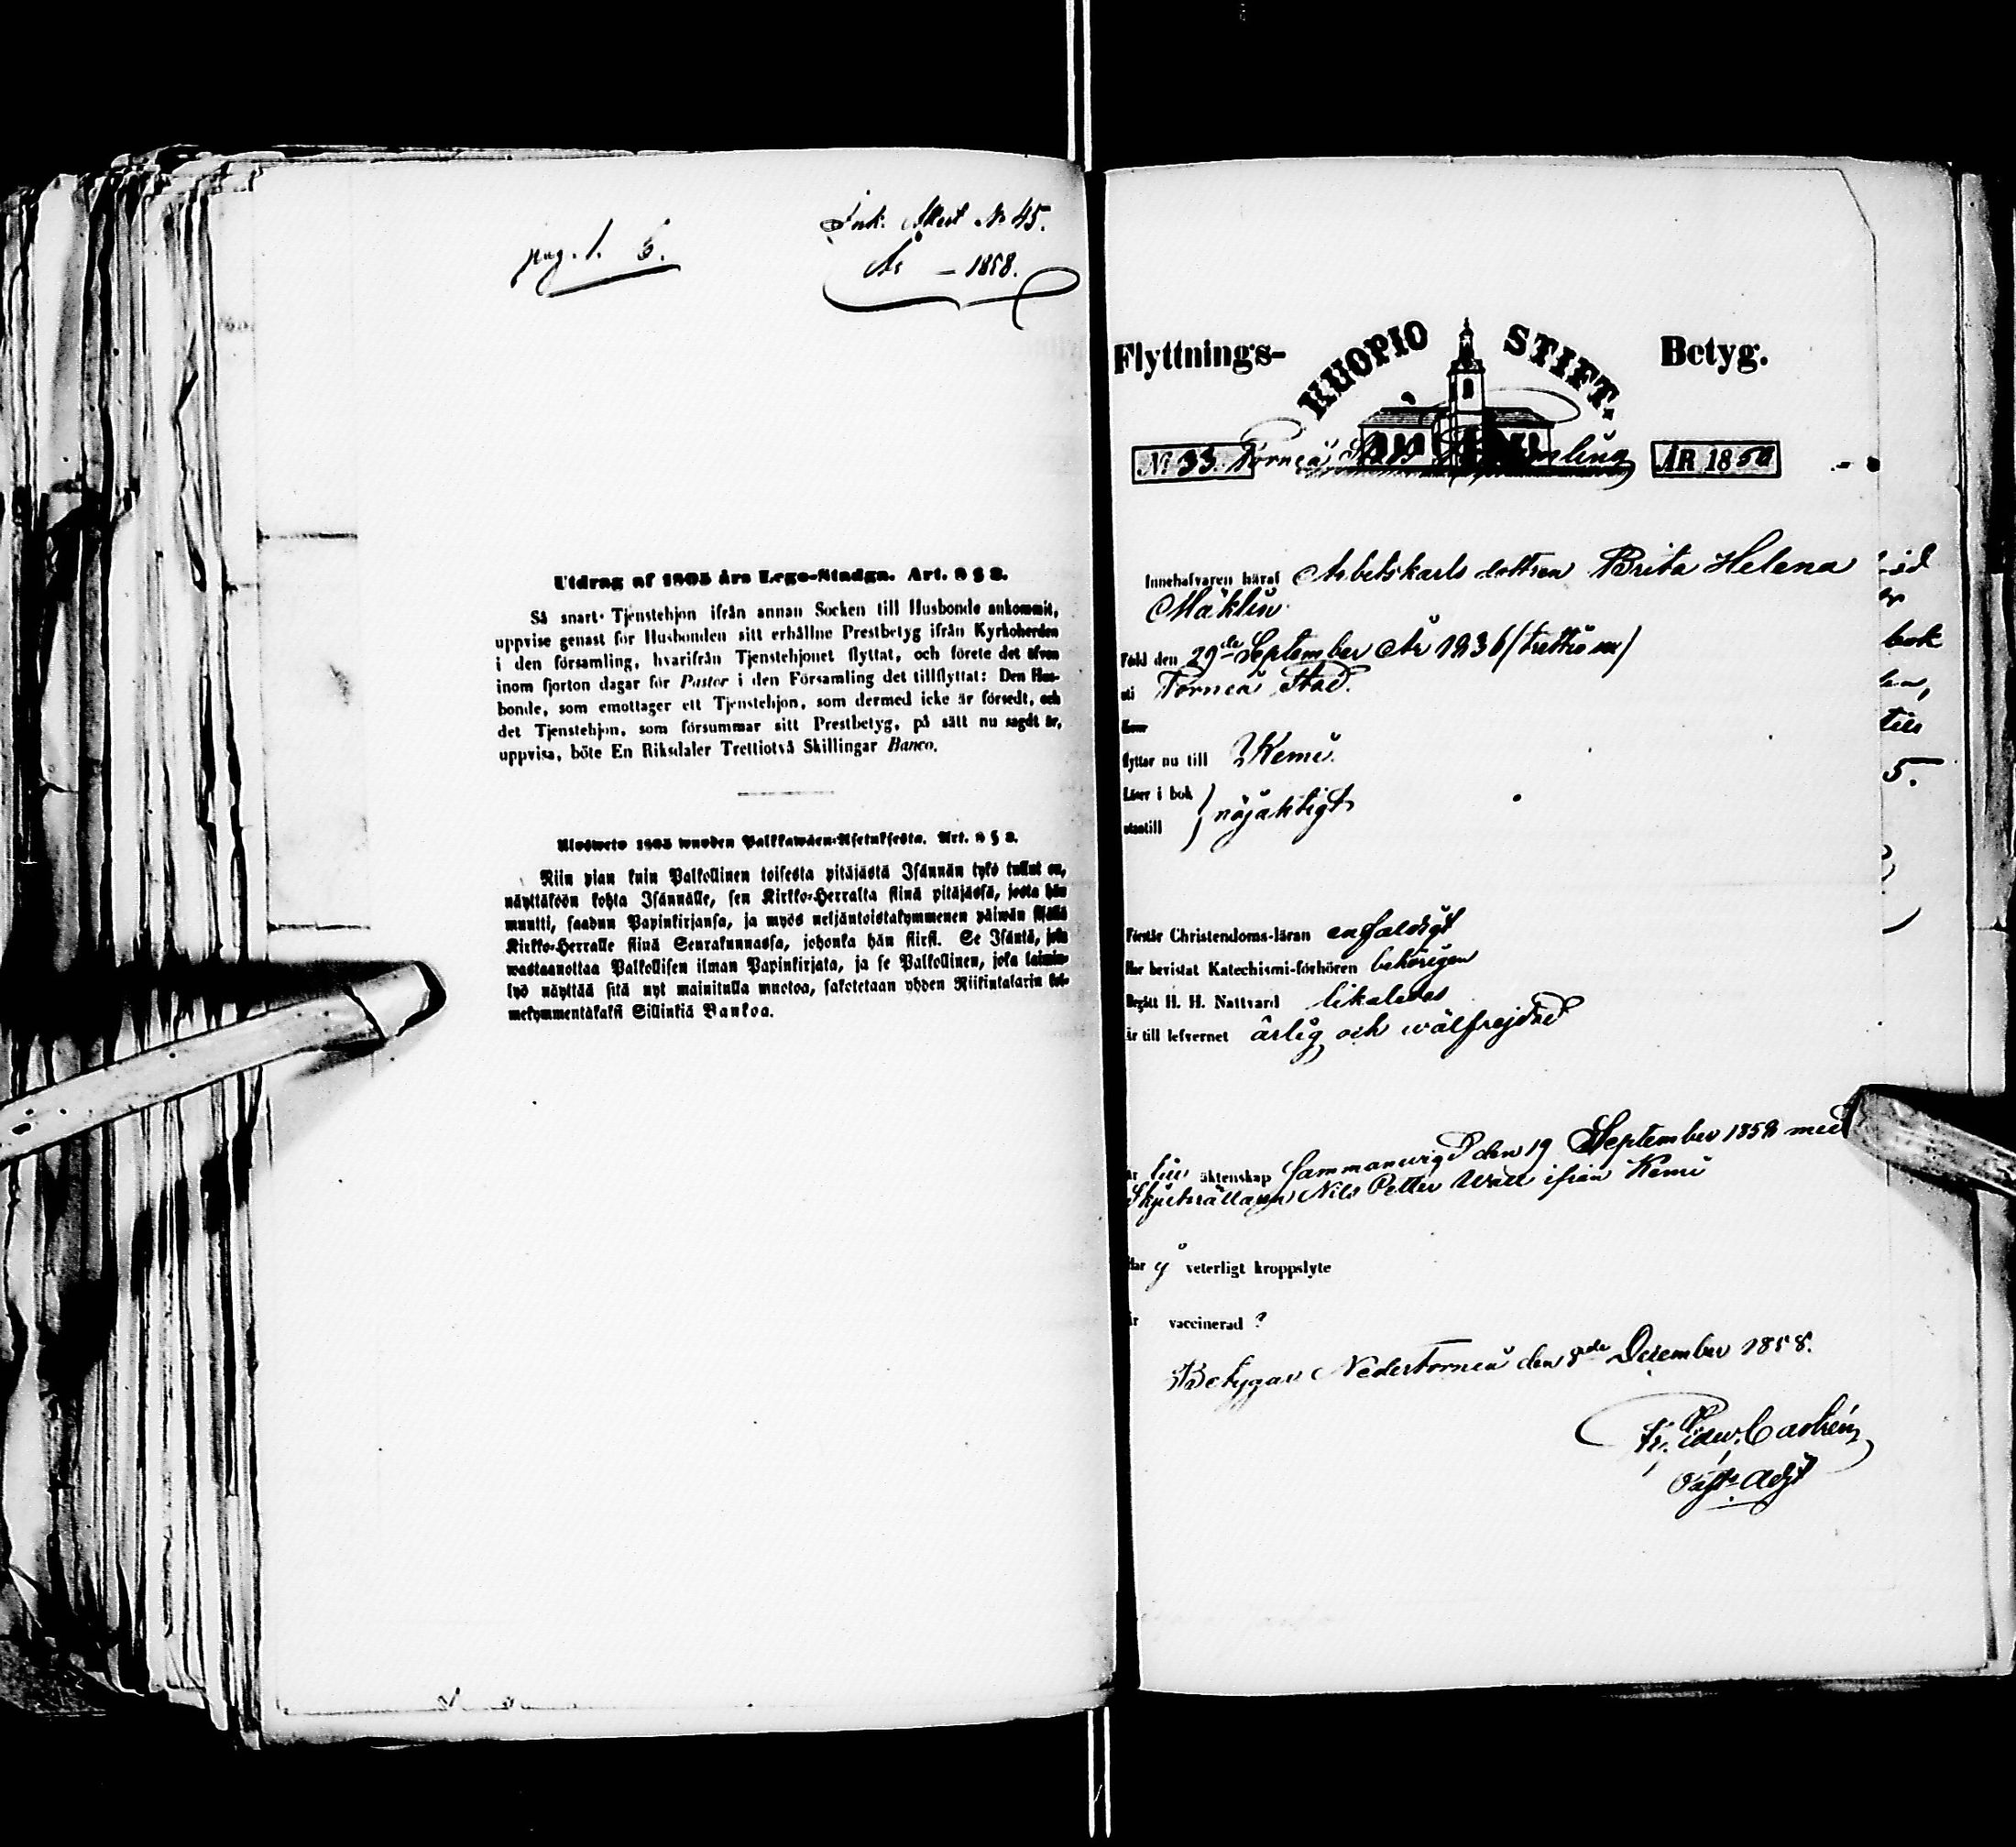 pag. 1. 5.
Ink. Attest No 45.
År – 1858.
Utdrag af 1805 års Lego-Stadga. Art. 8 § 2.
Så snart Tjenstehjon ifrån annan Socken till Husbonde ankommit,
uppvise genast för Husbonden sitt erhållne Prestbetyg ifrån Kyrkoherden
i den församling, hvarifrån Tjenstehjonet flyttat, och förete det äfven
inom fjorton dagar för Pastor i den Församling det tillflyttat: Den Hus-
bonde, som emottager ett Tjenstehjon, som dermed icke är försedt, och
det Tjenstehjon, som försummar sitt Prestbetyg, på sätt nu sagdt är,
uppvisa, böte En Riksdaler Trettiotvå Skillingar Banco.
Ulosweto 1805 wuoden Palkkawäen-Asetuksesta. Art. 8 § 2.
Niin pian kuin Palkollinen toisesta pitäjästä Isännän tykö tullut on,
näyttäköön kohta Isännälle, sen Kirkko-Herralta siinä pitäjässä, josta hän
muutti, saadun Papinkirjansa, ja myös neljäntoistakymmenen päiwän sisällä
Kirkko-Herralle siinä Seurakunnassa, johonka hän siirsi. Se Isäntä, joka
wastaanottaa Palkollisen ilman Papinkirjata, ja se Palkollinen, joka laimin-
lyö näyttää sitä nyt mainitulla muotoa, sakotetaan yhden Riikintalarin kol-
mekymmentäkaksi Sillinkiä Bankoa.
Flyttnings- KUOPIO STIFT. Betyg.
No 33. Torneå Stads Församling ÅR 1858
Innehafvaren häraf Arbetskarls dottren Brita Helena
Mäklin
Född den 29de September År 1836 (trettiosex)
uti Torneå Stad.
flyttar nu till Kemi.
Läser i bok
utantill } nöjaktigt
Förstår Christendoms-läran enfaldigt
Har bevistat Katechismi-förhören behörigen
Begått H. H. Nattvard likaledes
Är till lefvernet ärlig och wälfrejdad
äktenskap sammanvigd den 19 September 1858 med
Nils Petter Wall ifrån Kemi
Har ej veterligt kroppslyte
Är vaccinerad ?
Betygar Nedertorneå den 8de December 1858.
Fr. Edw. Castrén
Past. Adjt
bok
5.